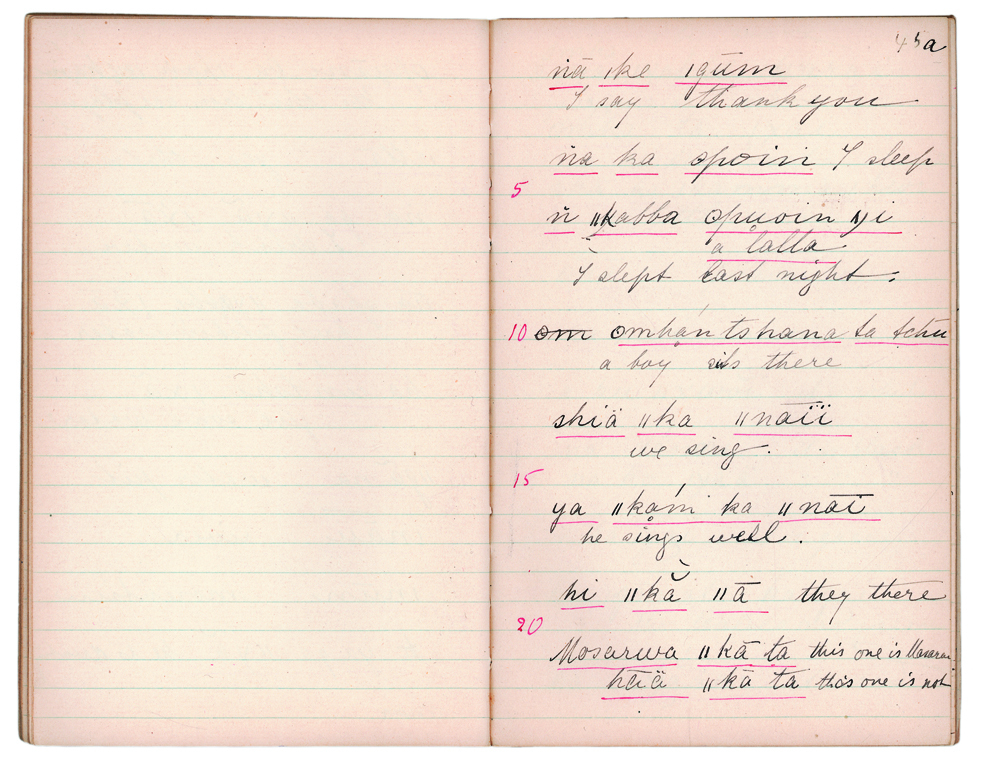 45a
ṅā ǀke ǀgūm
I say thank you
ṅa ka opoin I sleep
5
ṅ ǁkabba opuoin yi
a lalla
I slept last night.
10 om omhán tshana ta tchu
a boy sits there
shiä ǁka ǁnāïï
we sing.
15
ya ǁkáni ka ǁnāi
he sings well.
hi ǁkǎ ǁā they there
20
Mosarwa ǁkā ta this one is Masarwa
hāïä ǁkā ta this one is not